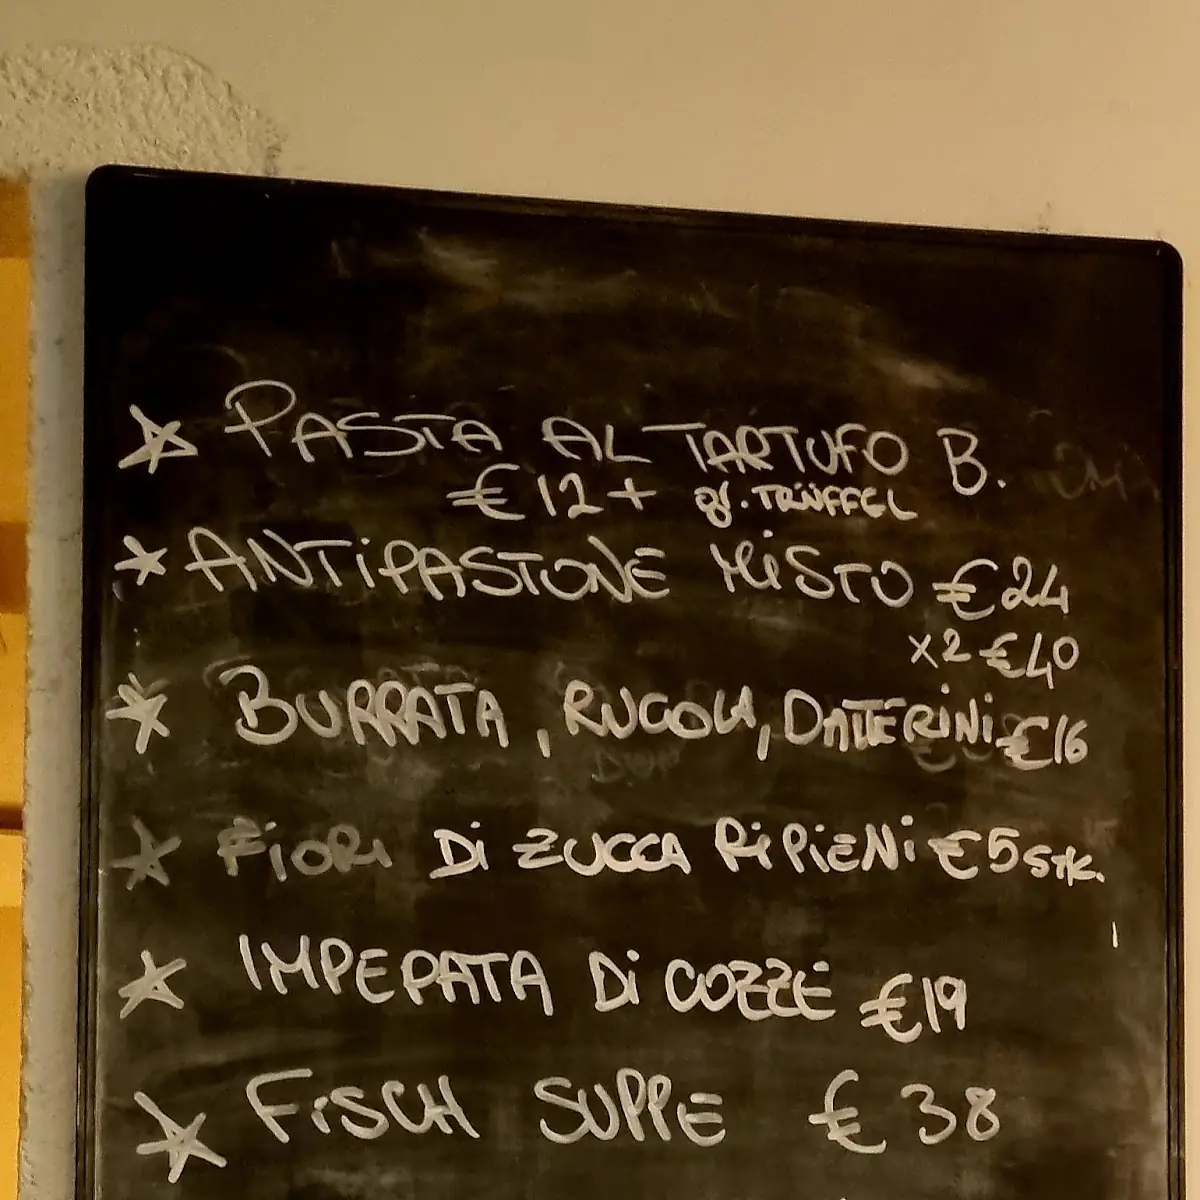 PASTA AL TARTUFO B.
€12+ gr. TRÜFFEL
ANTIPASTONE MISTO €24
x2 €40
BURRATA, RUCOLA, DATTERINI €16
FIORI Di ZUCCA RiPiENi €5 STK.
IMPEPATA Di COZZE €19
FiSCH SUPPE € 38